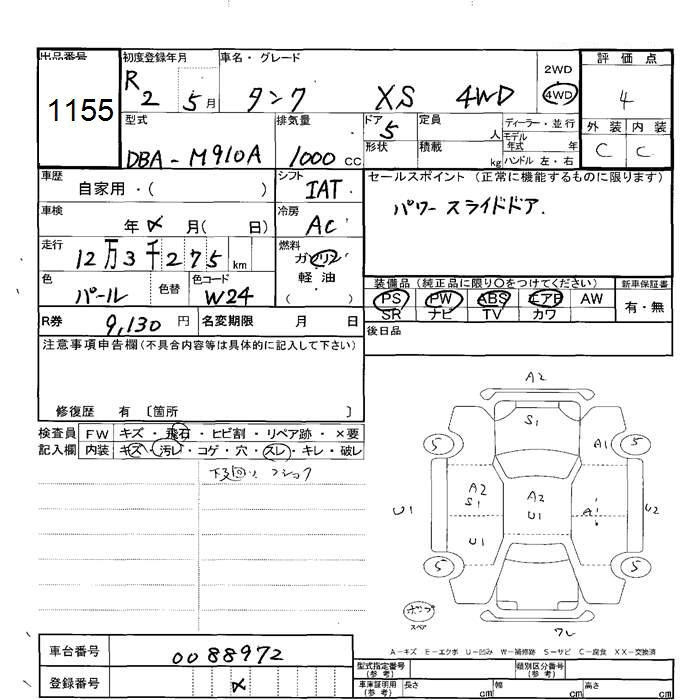 出品番号 1155
初度登録年月 R2 5月
車名・グレード タンク XS 4WD
2WD
4WD
評価点 4
外装 C 内装 C
型式 DBA-M910A
排気量 1000CC
ドア 5
形状
定員 人
積載 kg
ディーラー・並行
モデル年式 年
ハンドル 左・右
車歴 自家用・( )
シフト IAT
セールスポイント (正常に機能するものに限ります)
パワースライドドア.
車検 年メ月( 日)
冷房 AC
走行 12万3千275km
燃料 ガソリン 軽油 ( )
色 パール
色替
色コード W24
装備品 (純正品に限り○をつけてください)
新車保証書
PS PW ABS エアB AW
有・無
SR ナビ TV カワ
R券 9,130円
名変期限 月 日
後日品
注意事項申告欄(不具合内容等は具体的に記入して下さい)
修復歴 有 〔箇所 〕
検査員記入欄
FW キズ・飛石・ヒビ割・リペア跡・×要
内装 キズ・汚レ・コゲ・穴・スレ・キレ・破レ
下回り
A2
S1
5 A1 5
U1 A2 S1 A2 U1 A1 U2
U1
5 5
スペア
A-キズ E-エクボ U-凹み W-補修跡 S-サビ C-腐食 XX-交換済
車台番号 0088972
登録番号 メ
型式指定番号(参考)
類別区分番号(参考)
車庫証明用(参考) 長さ cm 幅 cm 高さ cm